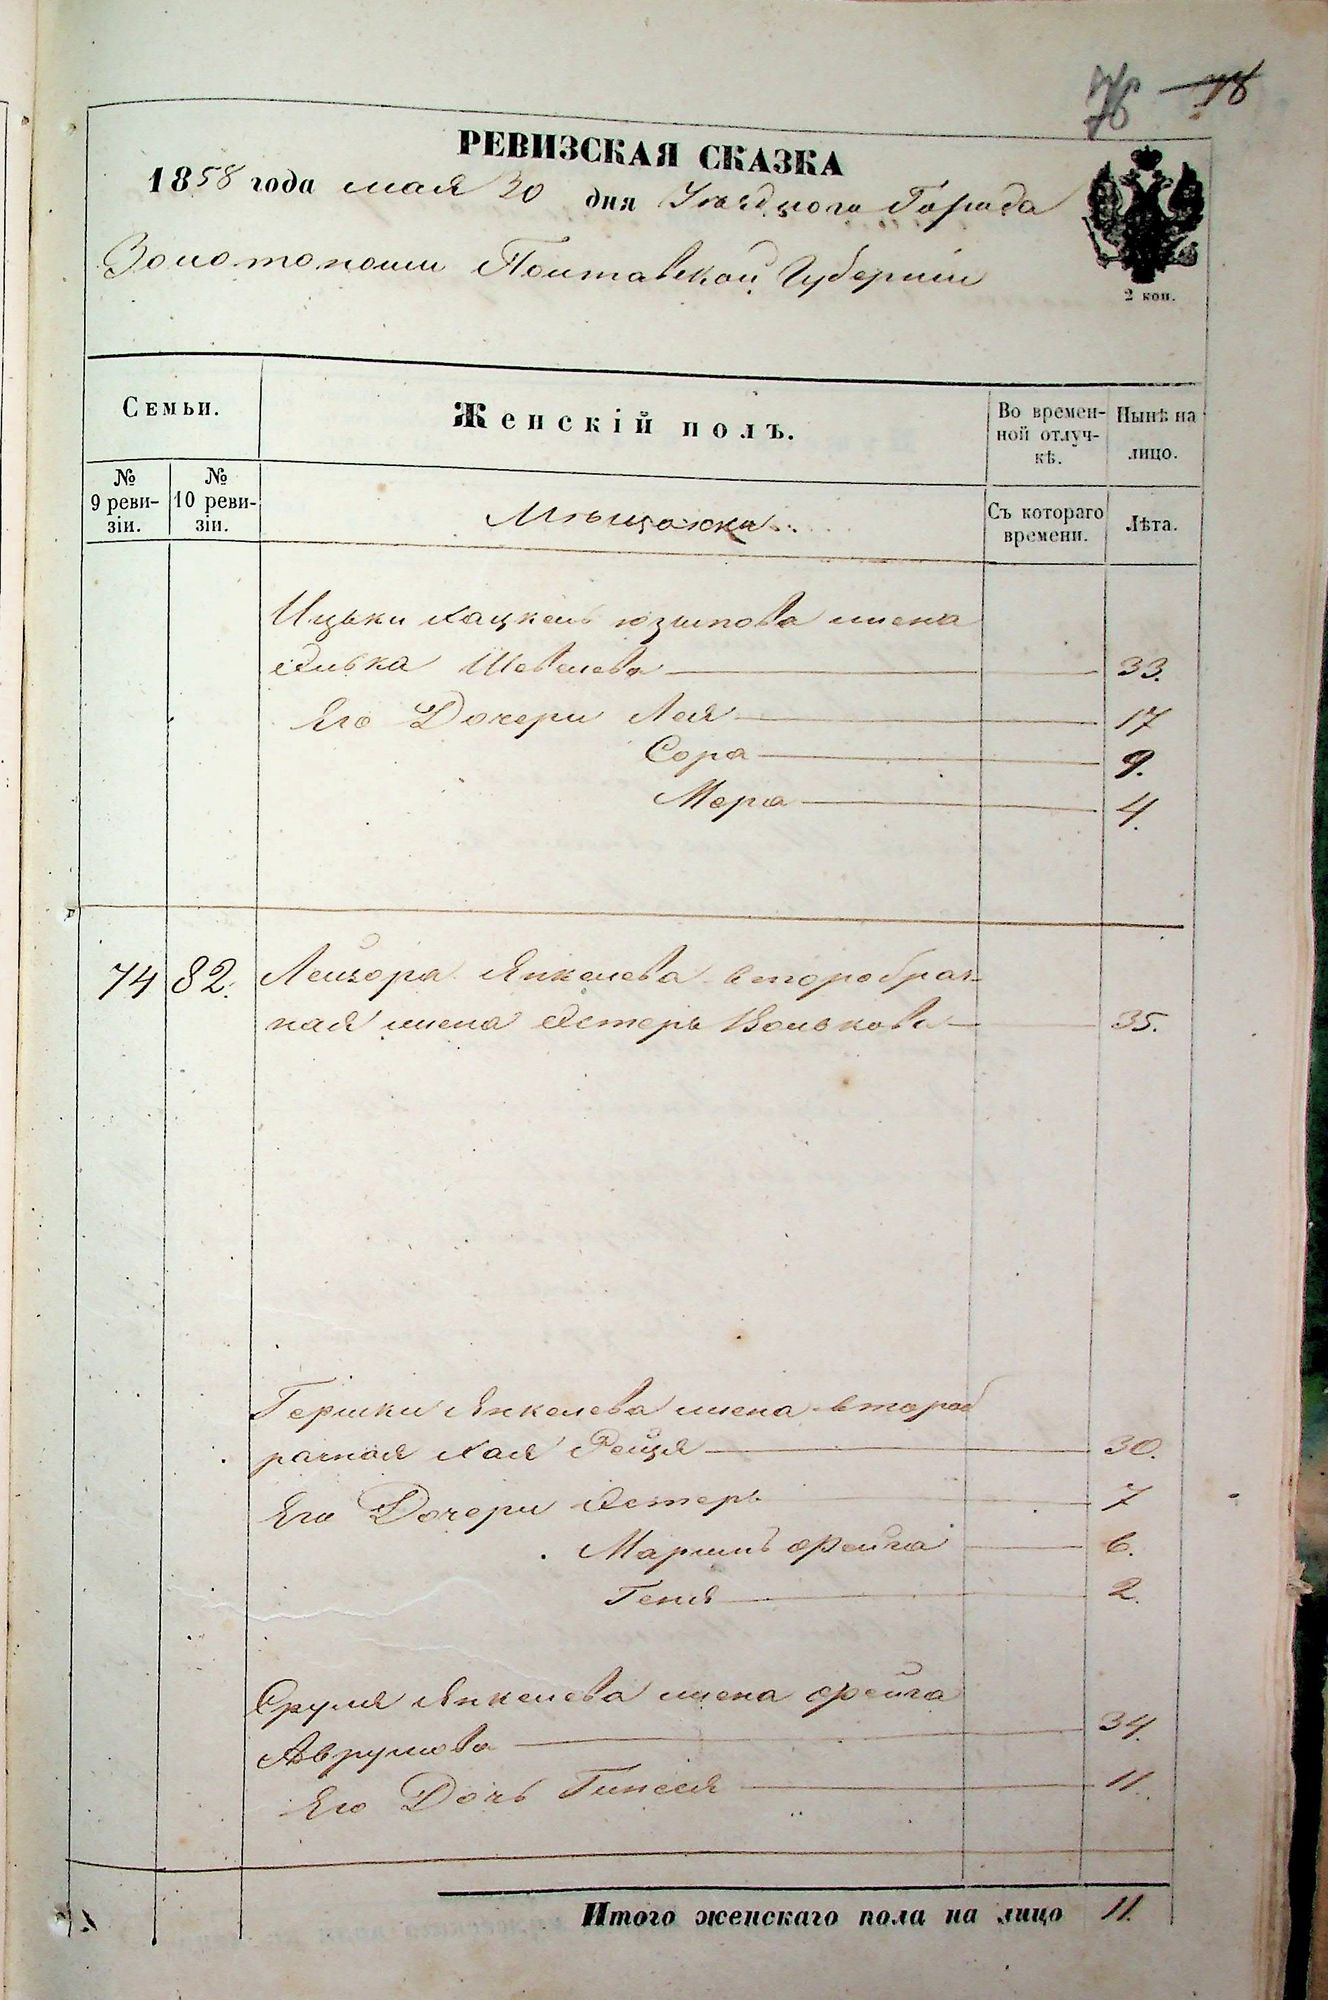 76 78
РЕВИЗСКАЯ СКАЗКА
1858 года мая 30 дня Уѣзднаго Города
Золотоноши Полтавской Губерніи
2 коп.
Семьи.
Женскій полъ.
Во времен-
ной отлуч-
кѣ.
Нынѣ на
лицо.
№
9 реви-
зіи.
№
10 реви-
зіи.
Мѣщанки
Съ котораго
времени.
Лѣта.
Ицьки Хацкель Юзипова жена
Ривка Шевелева 33.
Его Дочери Лея 17
Сора 9.
Мера 4.
74 82. Лейзора Янкелева второбрач-
ная жена Эстеръ Волькова 35.
Гершки Янкелева жена второб
рачная Хая Рейзя 30.
Его Дочери Эстеръ 7
Маримъ Фейга 6.
Геня 2.
Сруля Янкелева жена Фейга
Аврумова 34.
Его Дочь 11.
Итого женскаго пола на лицо 11.